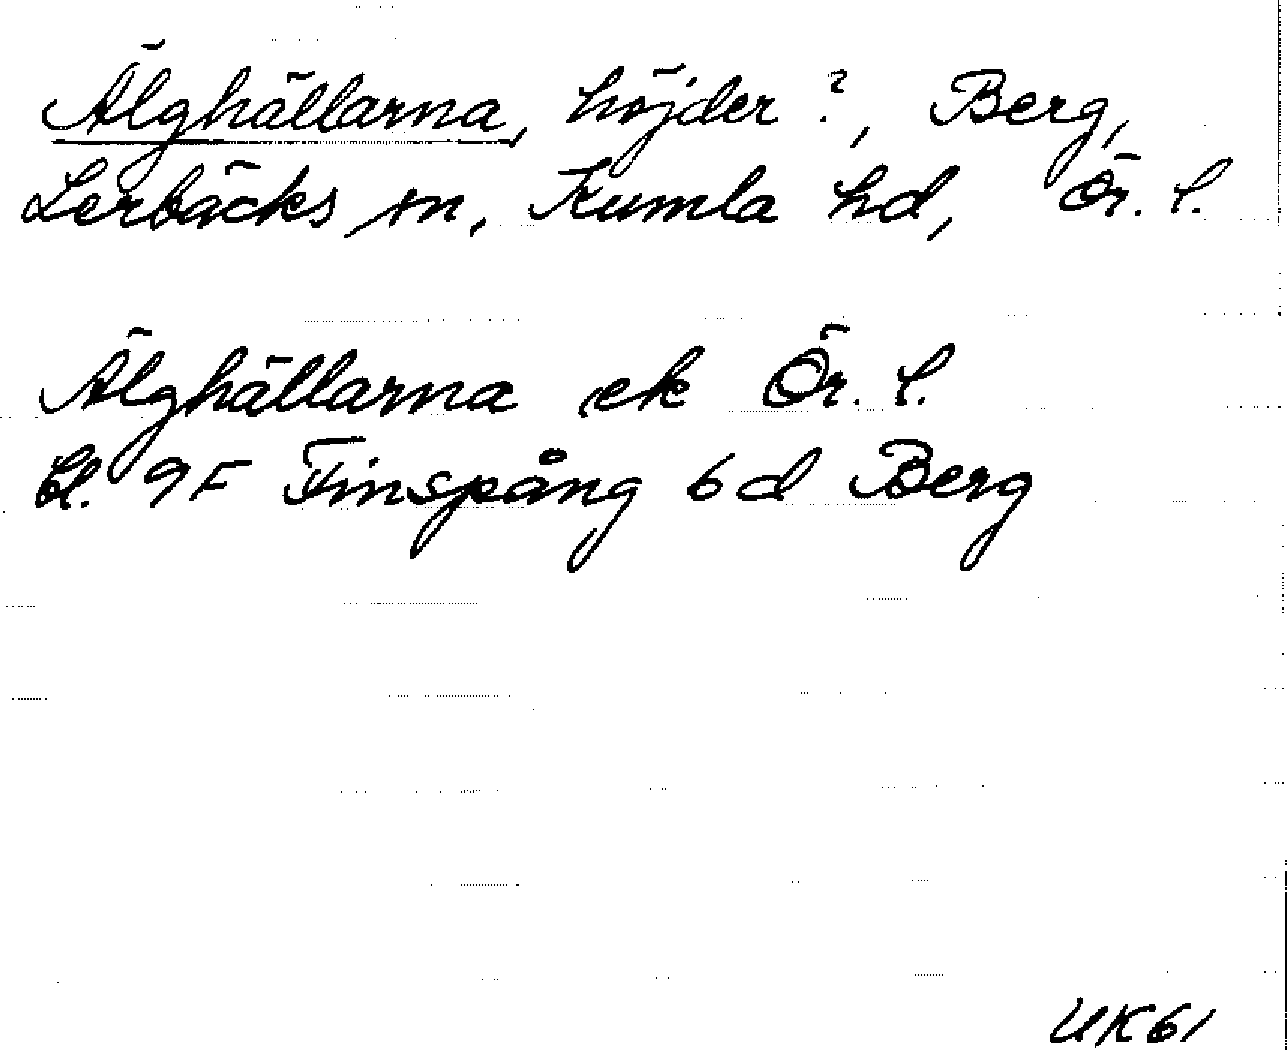 Älghällarna, höjder?, Berg,
Lerbäcks sn, Kumla hd, Ör. l.
Älghällarna ek Ör. l.
bl. 9F Finspång 6d Berg
UK61